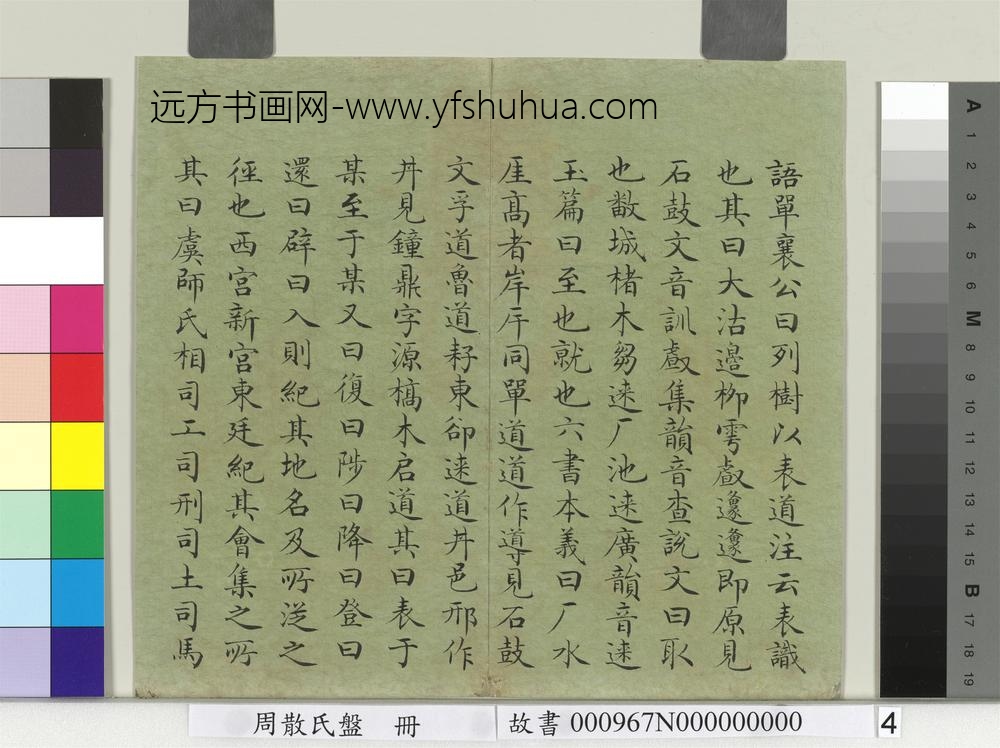 远方书画网-www.yfshuhua.com
語單襄公曰列樹以表道注云表識
也其曰大沽邊柳雩䖒邍邍即原見
石鼓文音訓䖒集韻音查說文曰取
也㪚城楮木芻逨厂池逨廣韻音逨
玉篇曰至也就也六書本義曰厂水
厓高者岸厈同單道道作導見石鼓
文孚道魯道耔東卻逨道丼邑邢作
丼見鐘鼎字源槁木启道其曰表于
某至于某又曰復曰陟曰降曰登曰
還曰辟曰入則紀其地名及所從之
徑也西宮新宮東廷紀其會集之所
其曰虞師氏相司工司刑司土司馬
周散氏盤 冊
故書 000967N000000000
4
A 1 2 3 4 5 6 M 8 9 10 11 12 13 14 15 B 17 18 19